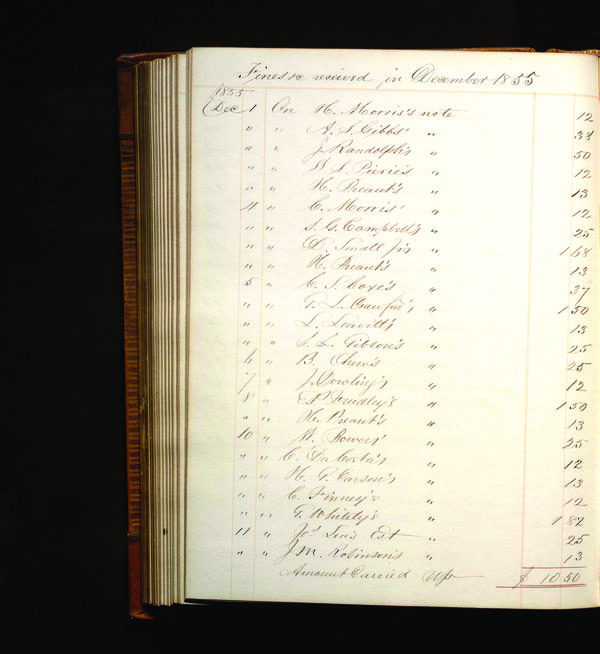 Fines &c received in December 1855
1855
Dec 1 On H. Morris's note 12
" " A. S. Gibbs' " 38
" " J. Randolph's " 50
" " W. S. Pierie's " 12
" " H. Preaut's " 13
4 " C. Morris' " 12
" " S. G. Campbell's " 25
" " D. Small Jr's " 1 68
" " H. Preaut's " 13
5 " C. S. Coxe's " 37
" " T. S. Crawford's " 1 50
" " L. Leavitt's " 13
" " Gibson's " 25
6 " B. Chew's " 25
7 " J. Dowling's " 12
8 " Fridley's " 1 50
" " H. Preaut's " 13
10 " W. Bowers' " 25
" " C. Da Costa's " 12
" " H. G. Carson's " 13
" " C. Finney's " 12
" " G. Whitely's " 1 82
11 " Jos. Lea's Est " 25
" " J. M. Robinson's " 13
Amount Carried Up $ 10 50